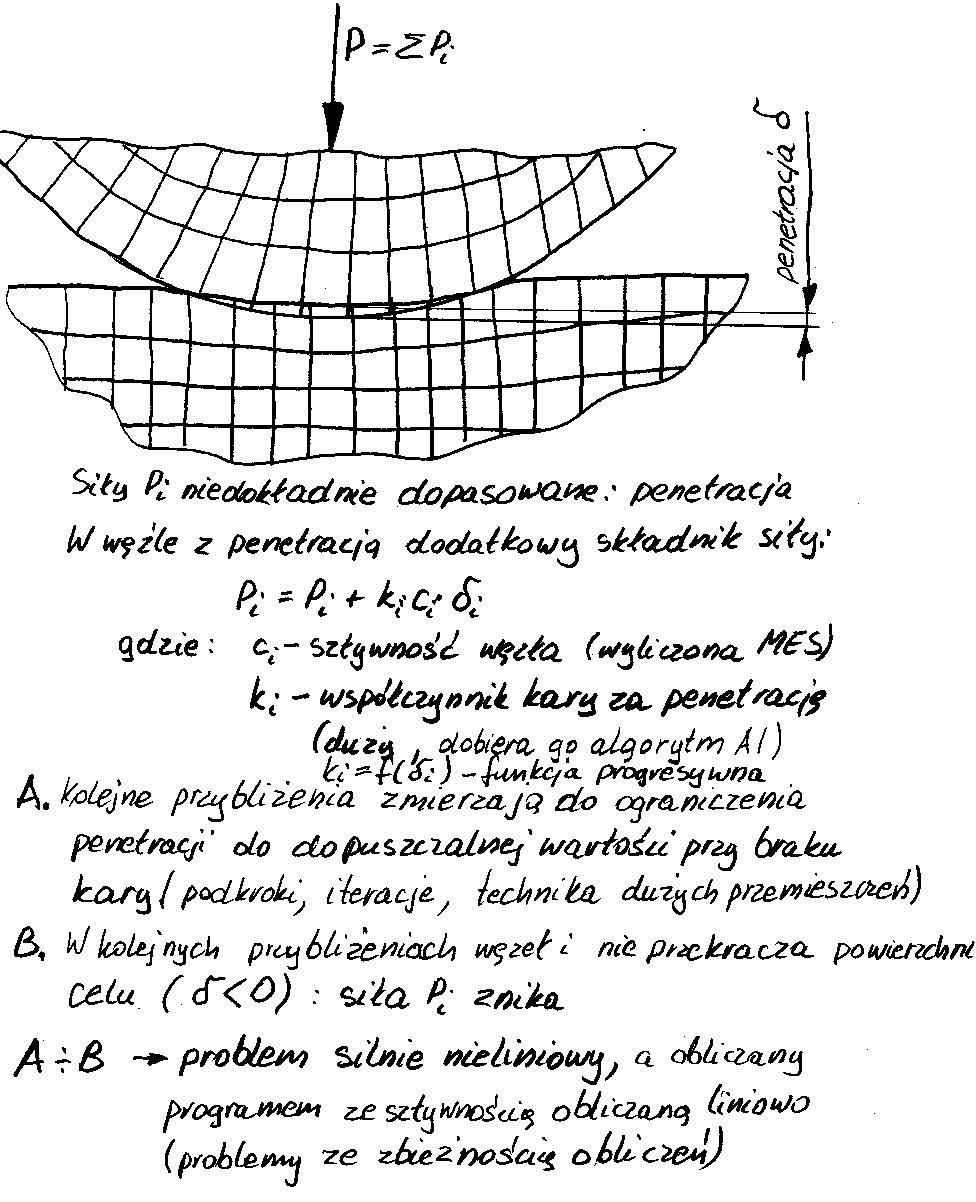 P = Σ Pᵢ
penetracja δ
Siły Pᵢ niedokładnie dopasowane: penetracja
W węźle z penetracją dodatkowy składnik siły:
Pᵢ = Pᵢ + kᵢ cᵢ δᵢ
gdzie: cᵢ – sztywność węzła (wyliczona MES)
kᵢ – współczynnik kary za penetrację
(duży, dobiera go algorytm AI)
kᵢ = f(δᵢ) – funkcja progresywna
A. Kolejne przybliżenia zmierzają do ograniczenia
penetracji do dopuszczalnej wartości przy braku
kary (podkroki, iteracje, technika dużych przemieszczeń)
B. W kolejnych przybliżeniach węzeł i nie przekracza powierzchni
celu (δ<0) : siła Pᵢ znika
A ÷ B → problem silnie nieliniowy, a obliczany
programem ze sztywnością obliczaną liniowo
(problemy ze zbieżnością obliczeń)